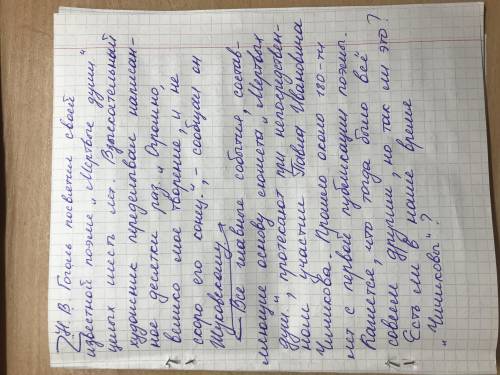 Н.В. Гоголь посветил своей
известной поэме „Мертвые души"
целых шесть лет. Взыскательный
художник переделывал написан-
ное десятки раз. „Огромно,
велико мое творение, и не
скоро его конец", - сообщал он
Жуковскому.
Все главные события, состав-
ляющие основу сюжета „Мертвых
душ", протекают при непосредствен-
ном участие Павла Ивановича
Чичикова. Прошло около 180-ти
лет с первой публикации поэмы.
Кажется, что тогда было всё
совсем другими, но так ли это?
Есть ли в наше время
„Чичиковы"?